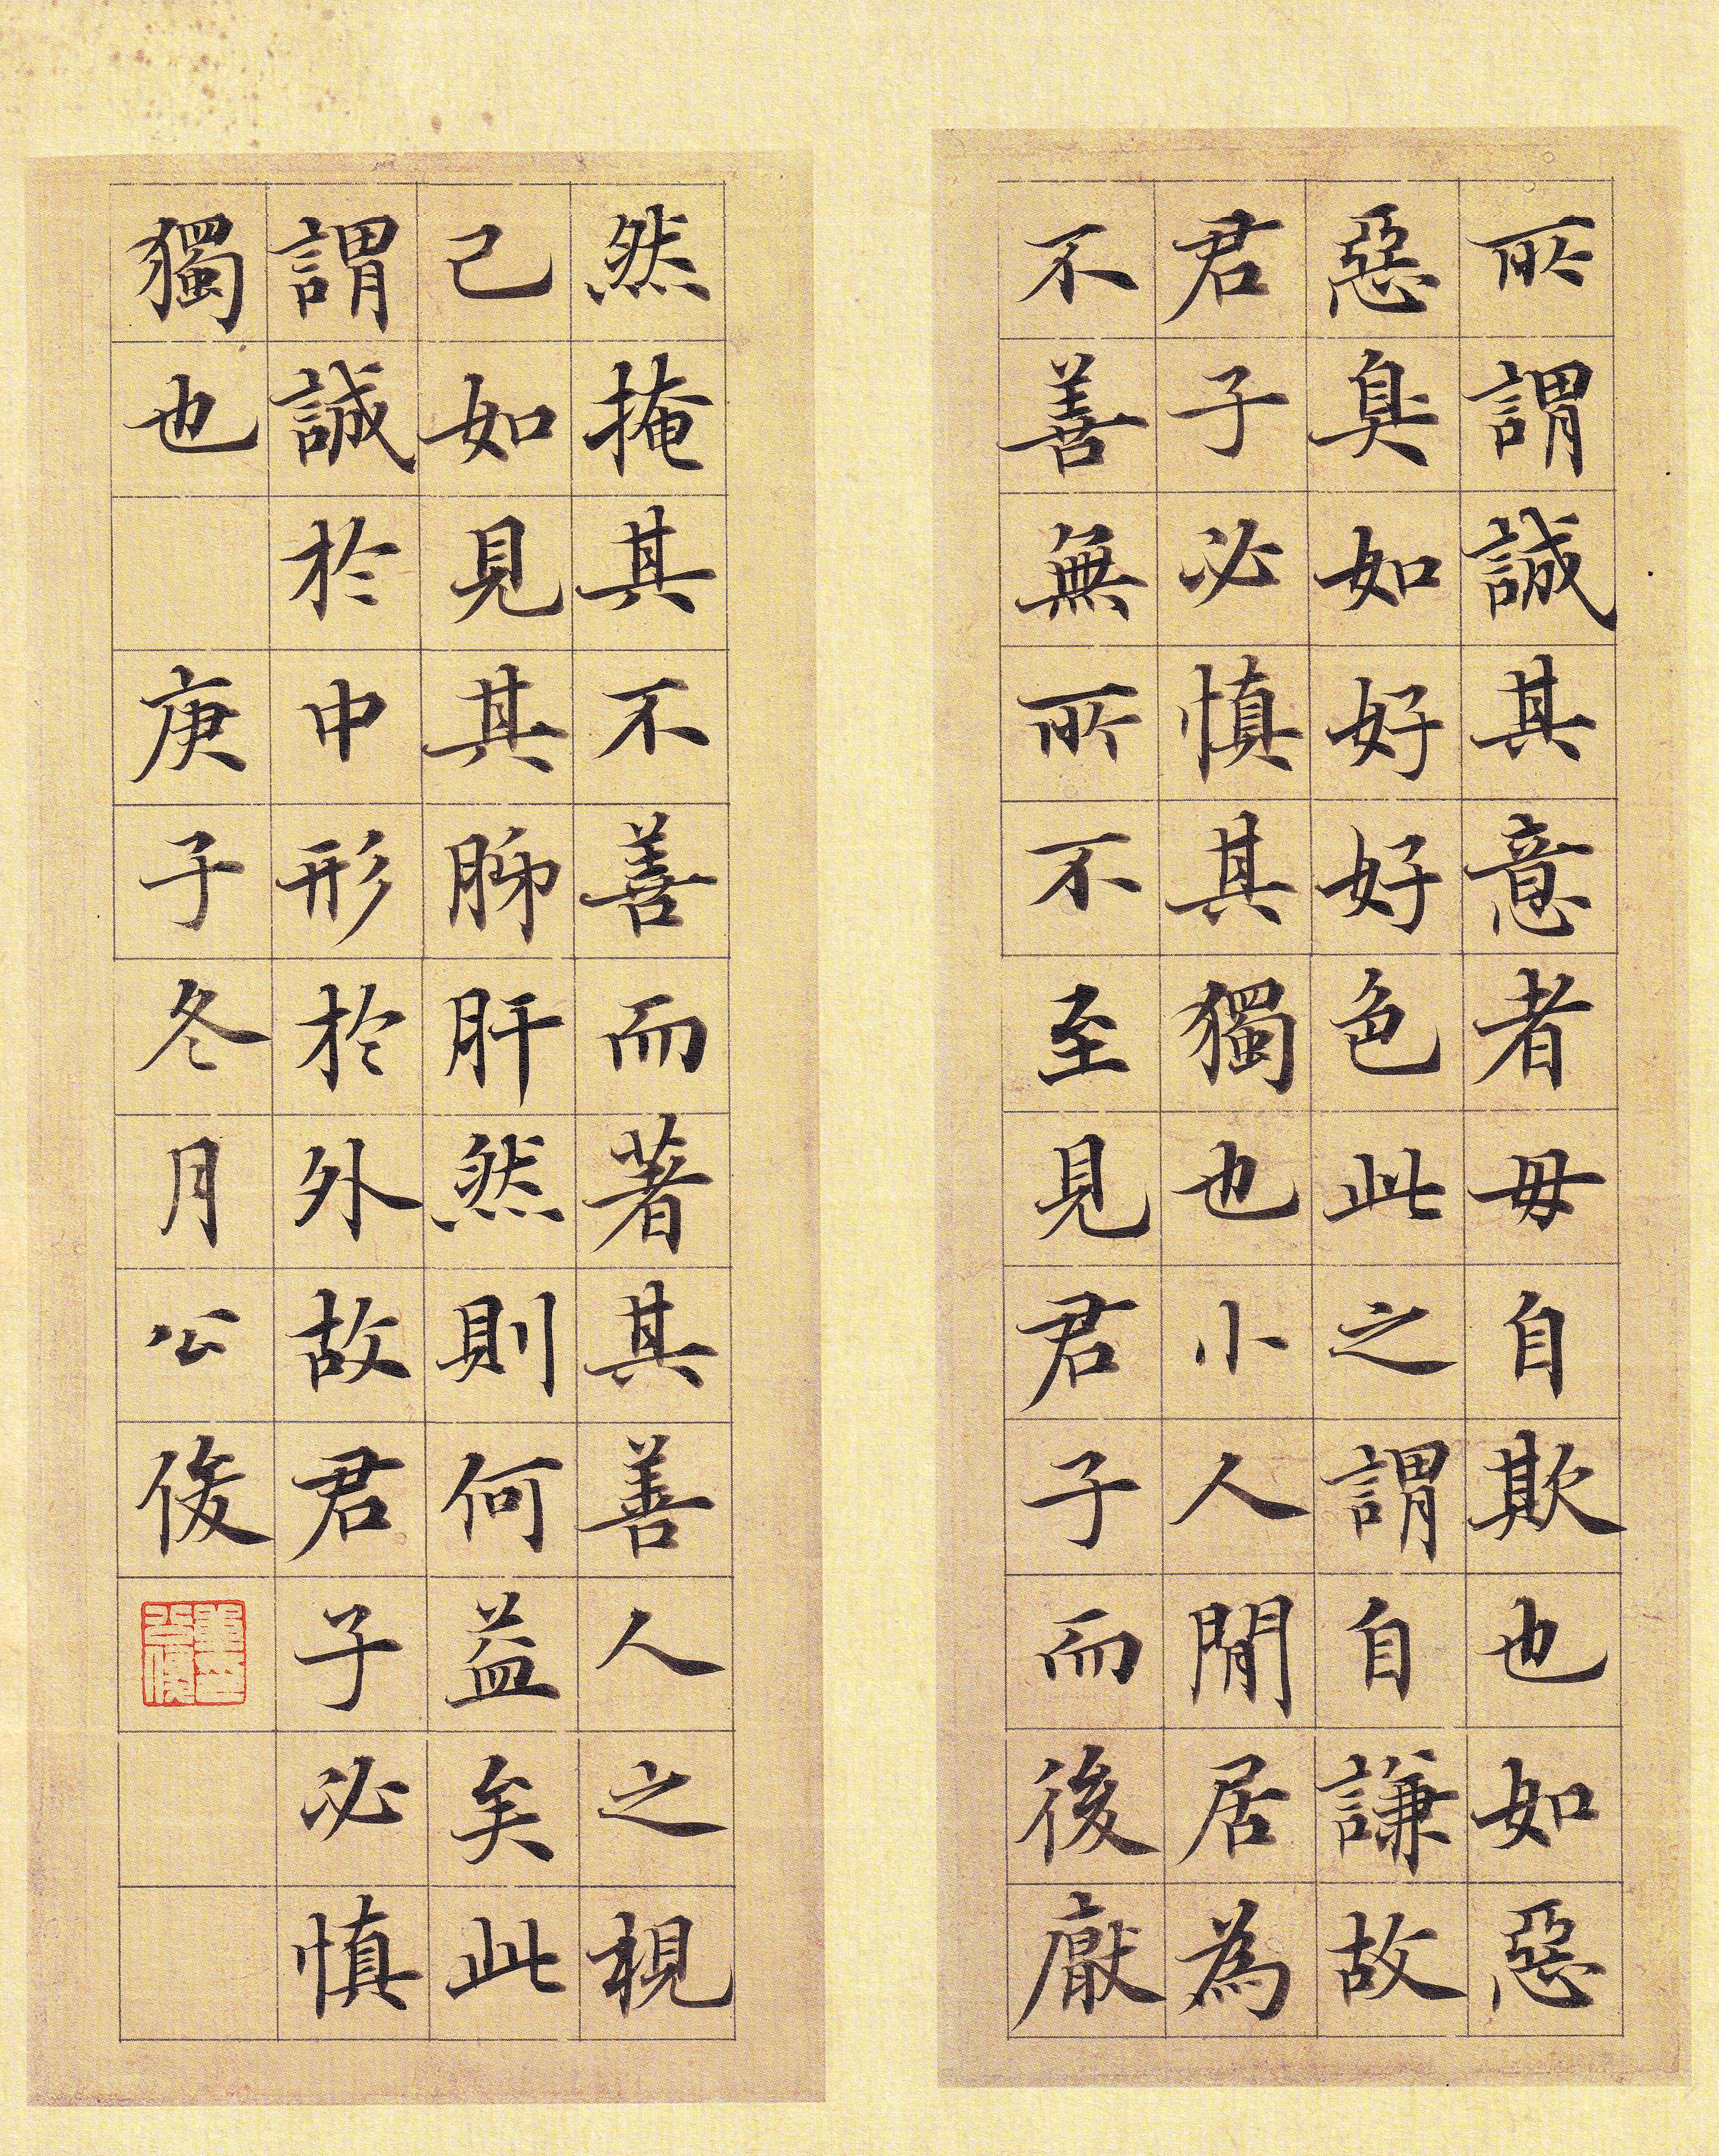 所謂誠其意者毋自欺也如惡
惡臭如好好色此之謂自謙故
君子必慎其獨也小人閒居為
不善無所不至見君子而後厭
然掩其不善而著其善人之視
己如見其肺肝然則何益矣此
謂誠於中形於外故君子必慎
獨也 庚子冬月公俊